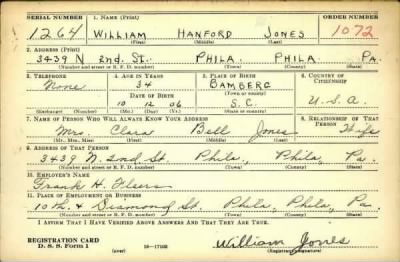 SERIAL NUMBER 1. NAME (Print) ORDER NUMBER
1264 WILLIAM HANFORD JONES 1072
(First) (Middle) (Last)
2. ADDRESS (Print)
3439 N 2nd. St. PHILA. PHILA. PA.
(Number and street or R. F. D. number) (Town) (County) (State)
3. TELEPHONE 4. AGE IN YEARS 5. PLACE OF BIRTH 6. COUNTRY OF CITIZENSHIP
None 34 BAMBERG U.S.A.
DATE OF BIRTH (Town or county)
10 12 06 S.C.
(Exchange) (No.) (Mo.) (Day) (Yr.) (State or country)
7. NAME OF PERSON WHO WILL ALWAYS KNOW YOUR ADDRESS 8. RELATIONSHIP OF THAT PERSON
Mrs Clara Bell Jones Wife
(Mr., Mrs., Miss) (First) (Middle) (Last)
9. ADDRESS OF THAT PERSON
3439 N. 2nd St. Phila., Phila., Pa.
(Number and street or R. F. D. number) (Town) (County) (State)
10. EMPLOYER'S NAME
Frank H.
11. PLACE OF EMPLOYMENT OR BUSINESS
10th. & Diamond St. Phila, Phila, Pa.
(Number and street or R. F. D. number) (Town) (County) (State)
I AFFIRM THAT I HAVE VERIFIED ABOVE ANSWERS AND THAT THEY ARE TRUE.
REGISTRATION CARD
D. S. S. Form 1 (over) 16-17105 William Jones
(Registrant's signature)